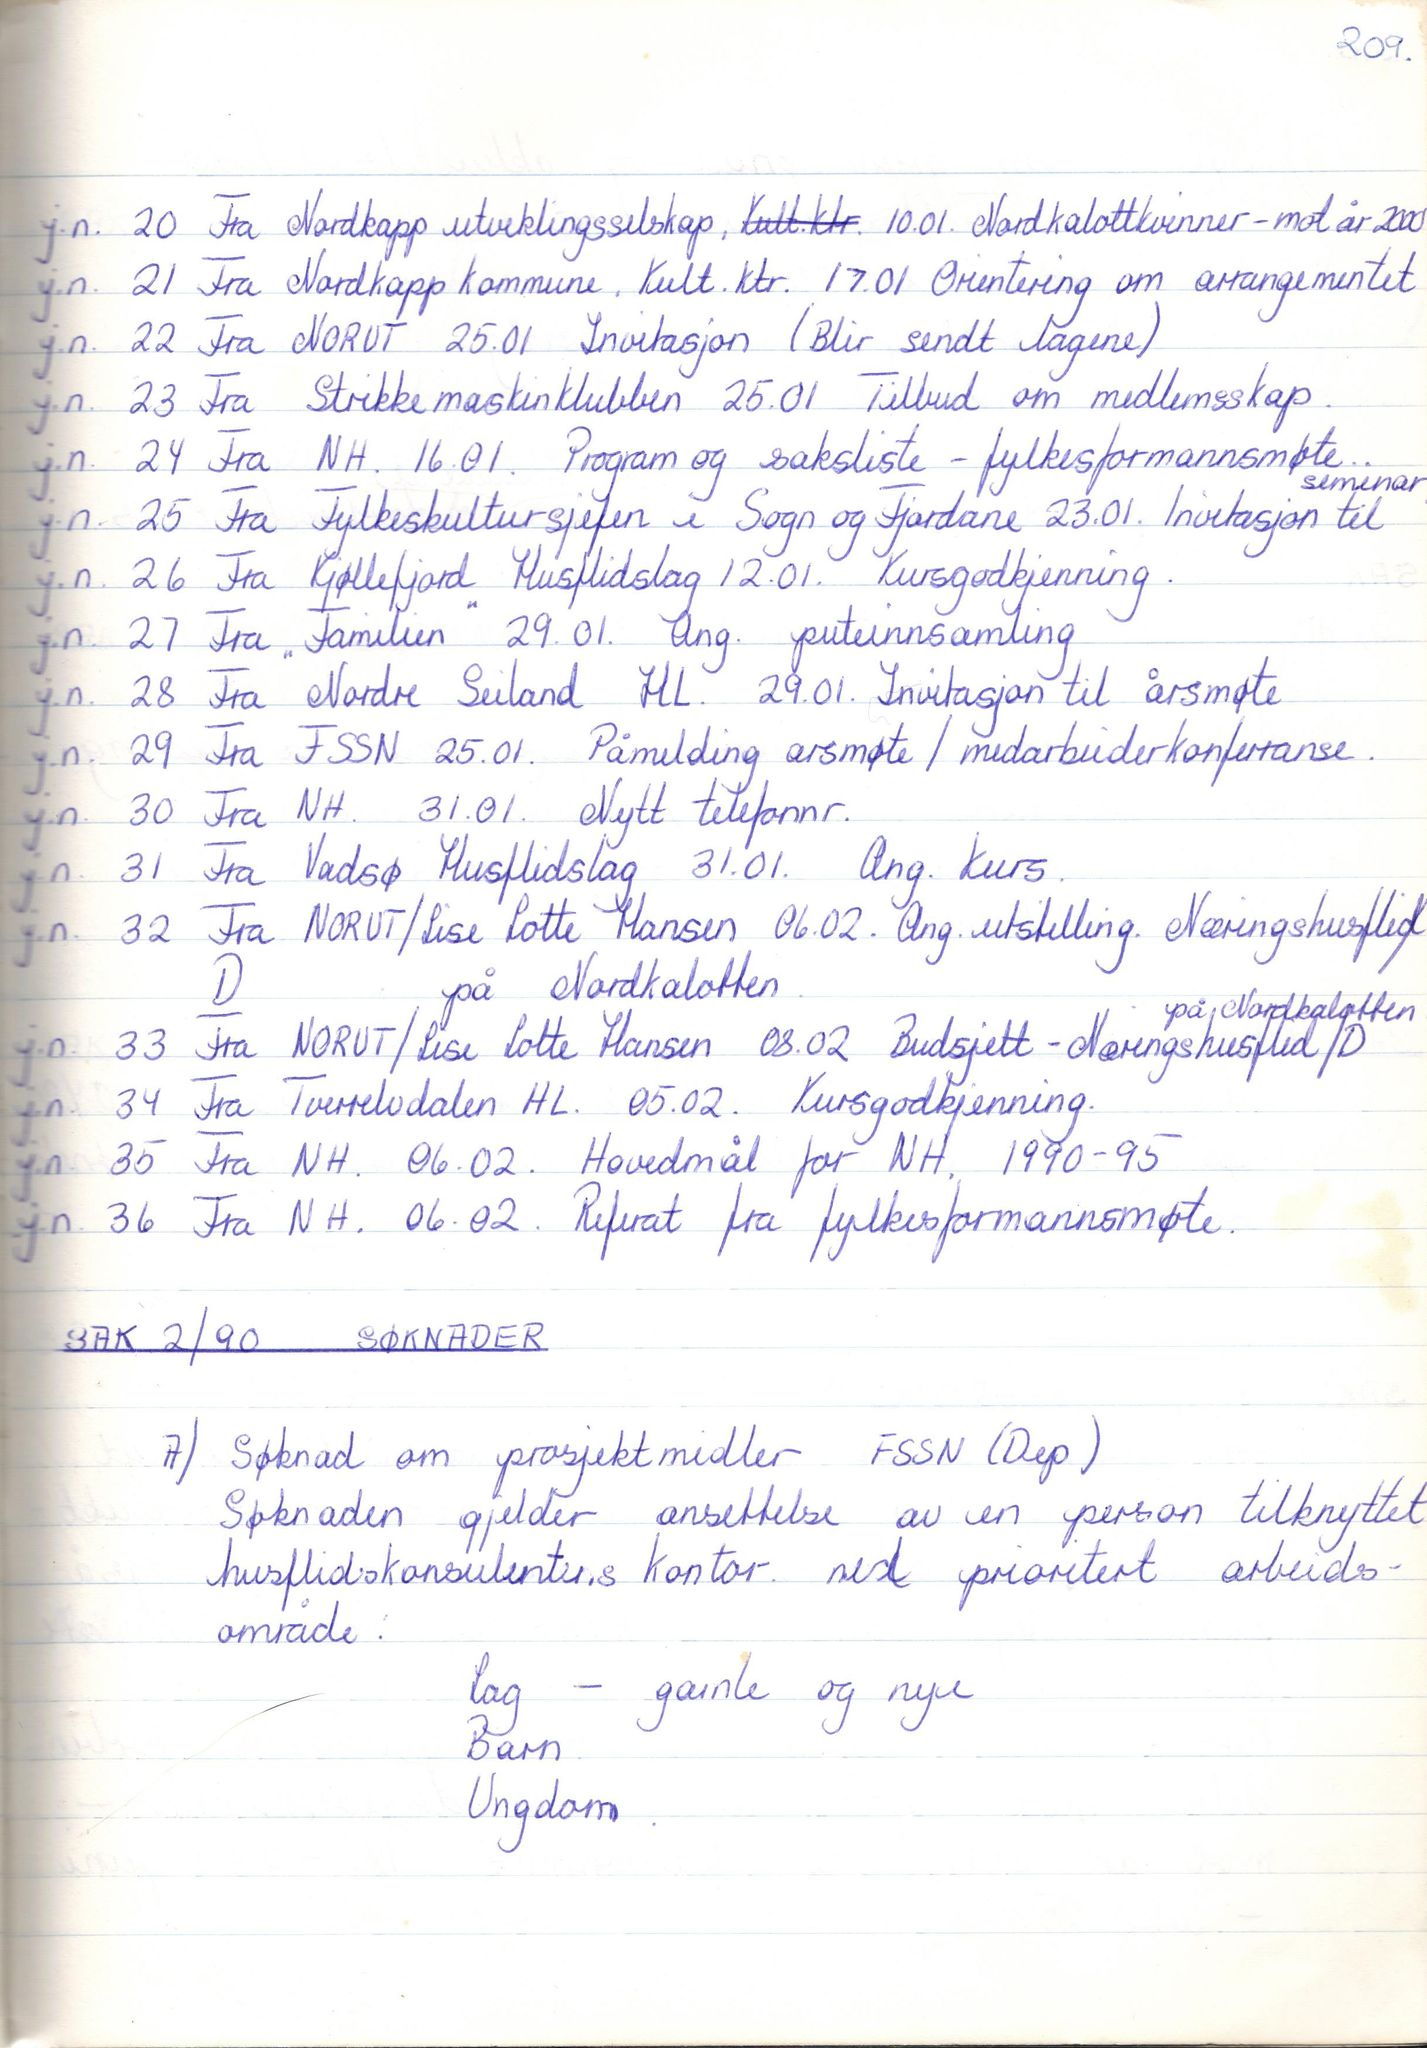 209.
j.n. 20 Fra Nordkapp utviklingsselskap, Kult.ktr. 10.01. Nordkalottkvinner - mot år 2000
j.n. 21 Fra Nordkapp kommune, Kult. ktr. 17.01 Orientering om arrangementet
j.n. 22 Fra NORUT 25.01 Invitasjon (Blir sendt lagene)
j.n. 23 Fra Strikkemaskinklubben 25.01 Tilbud om medlemsskap.
j.n. 24 Fra NH. 16.01. Program og saksliste - fylkesformannsmøte..
seminar
j.n. 25 Fra Fylkeskultursjefen i Sogn og Fjordane 23.01. Invitasjon til
j.n. 26 Fra Kjøllefjord Husflidslag 12.01. Kursgodkjenning.
j.n. 27 Fra „Familien" 29.01. Ang. puteinnsamling
j.n. 28 Fra Nordre Seiland HL. 29.01. Invitasjon til årsmøte
j.n. 29 Fra FSSN 25.01. Påmelding årsmøte / medarbeiderkonferranse.
j.n. 30 Fra NH. 31.01. Nytt telefonnr.
j.n. 31 Fra Vadsø Husflidslag 31.01. Ang. kurs.
j.n. 32 Fra NORUT/Lise Lotte Hansen 06.02. Ang. utstilling. Næringshusflid/
D på Nordkalotten
på Nordkalotten
j.n. 33 Fra NORUT/Lise Lotte Hansen 08.02 Budsjett - Næringshusflid/D
j.n. 34 Fra Tverrelvdalen HL. 05.02. Kursgodkjenning.
j.n. 35 Fra NH. 06.02. Hovedmål for NH. 1990-95
j.n. 36 Fra NH. 06.02. Referat fra fylkesformannsmøte.
SAK 2/90 SØKNADER
A/ Søknad om prosjektmidler FSSN (Dep)
Søknaden gjelder ansettelse av en person tilknyttet
husflidskonsulentens kontor med prioritert arbeids-
område:
Lag - gamle og nye
Barn
Ungdom.